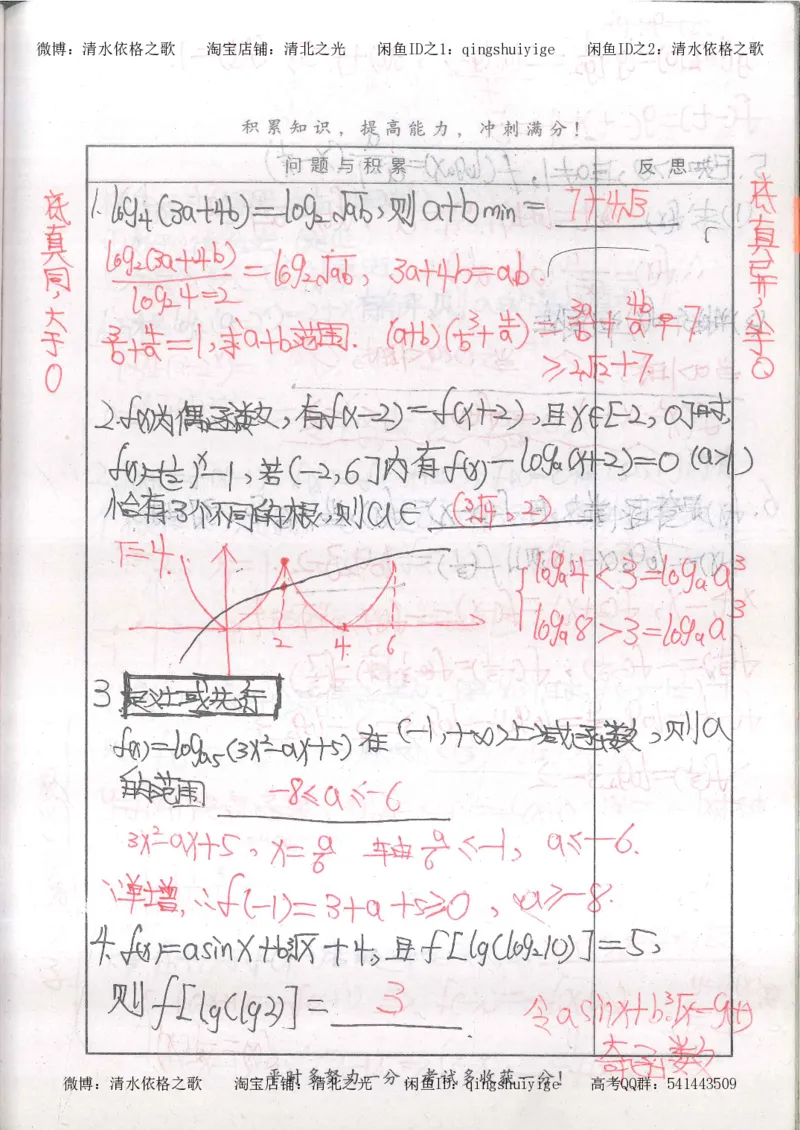 微博：清水依格之歌 淘宝店铺：清北之光 闲鱼ID之1：qingshuiyige 闲鱼ID之2：清水依格之歌
积累知识，提高能力，冲刺满分！
问题与积累 反思
底真同，大于0
底真异，小于0
1. log₄(3a+4b)=log₂√ab，则a+b min = 7+4√3
log₂(3a+4b)/log₂4=2 = log₂√ab，3a+4b=ab.
3/b+4/a=1，求a+b范围. (a+b)(3/b+4/a) = 3a/b+4b/a+7
≥2√12+7
2. f(x)为偶函数，有f(x-2)=f(x+2)，且x∈[-2，0]时，
f(x)=(1/2)ˣ-1，若(-2，6]内有f(x)-logₐ(x+2)=0 (a>1)
恰有3个不同的根，则a∈ (³√4，2)
T=4.
2 4 6
logₐ4<3=logₐa³
logₐ8>3=logₐa³
3 定义域先行
f(x)=log₀.₅(3x²-ax+5)在(-1，+∞)上减函数，则a
的范围 -8≤a≤-6
3x²-ax+5，x=a/6 a/6≤-1，a≤-6.
单增，∴f(-1)=3+a+5≥0，a≥-8.
4. f(x)=asinx+b³√x+4，且f[lg(log₂10)]=5，
则f[lg(lg2)]= 3
令asinx+b³√x=g(x)
奇函数
平时多努力一分，考试多收获一分！
微博：清水依格之歌 淘宝店铺：清北之光 闲鱼ID：qingshuiyige 高考QQ群：541443509